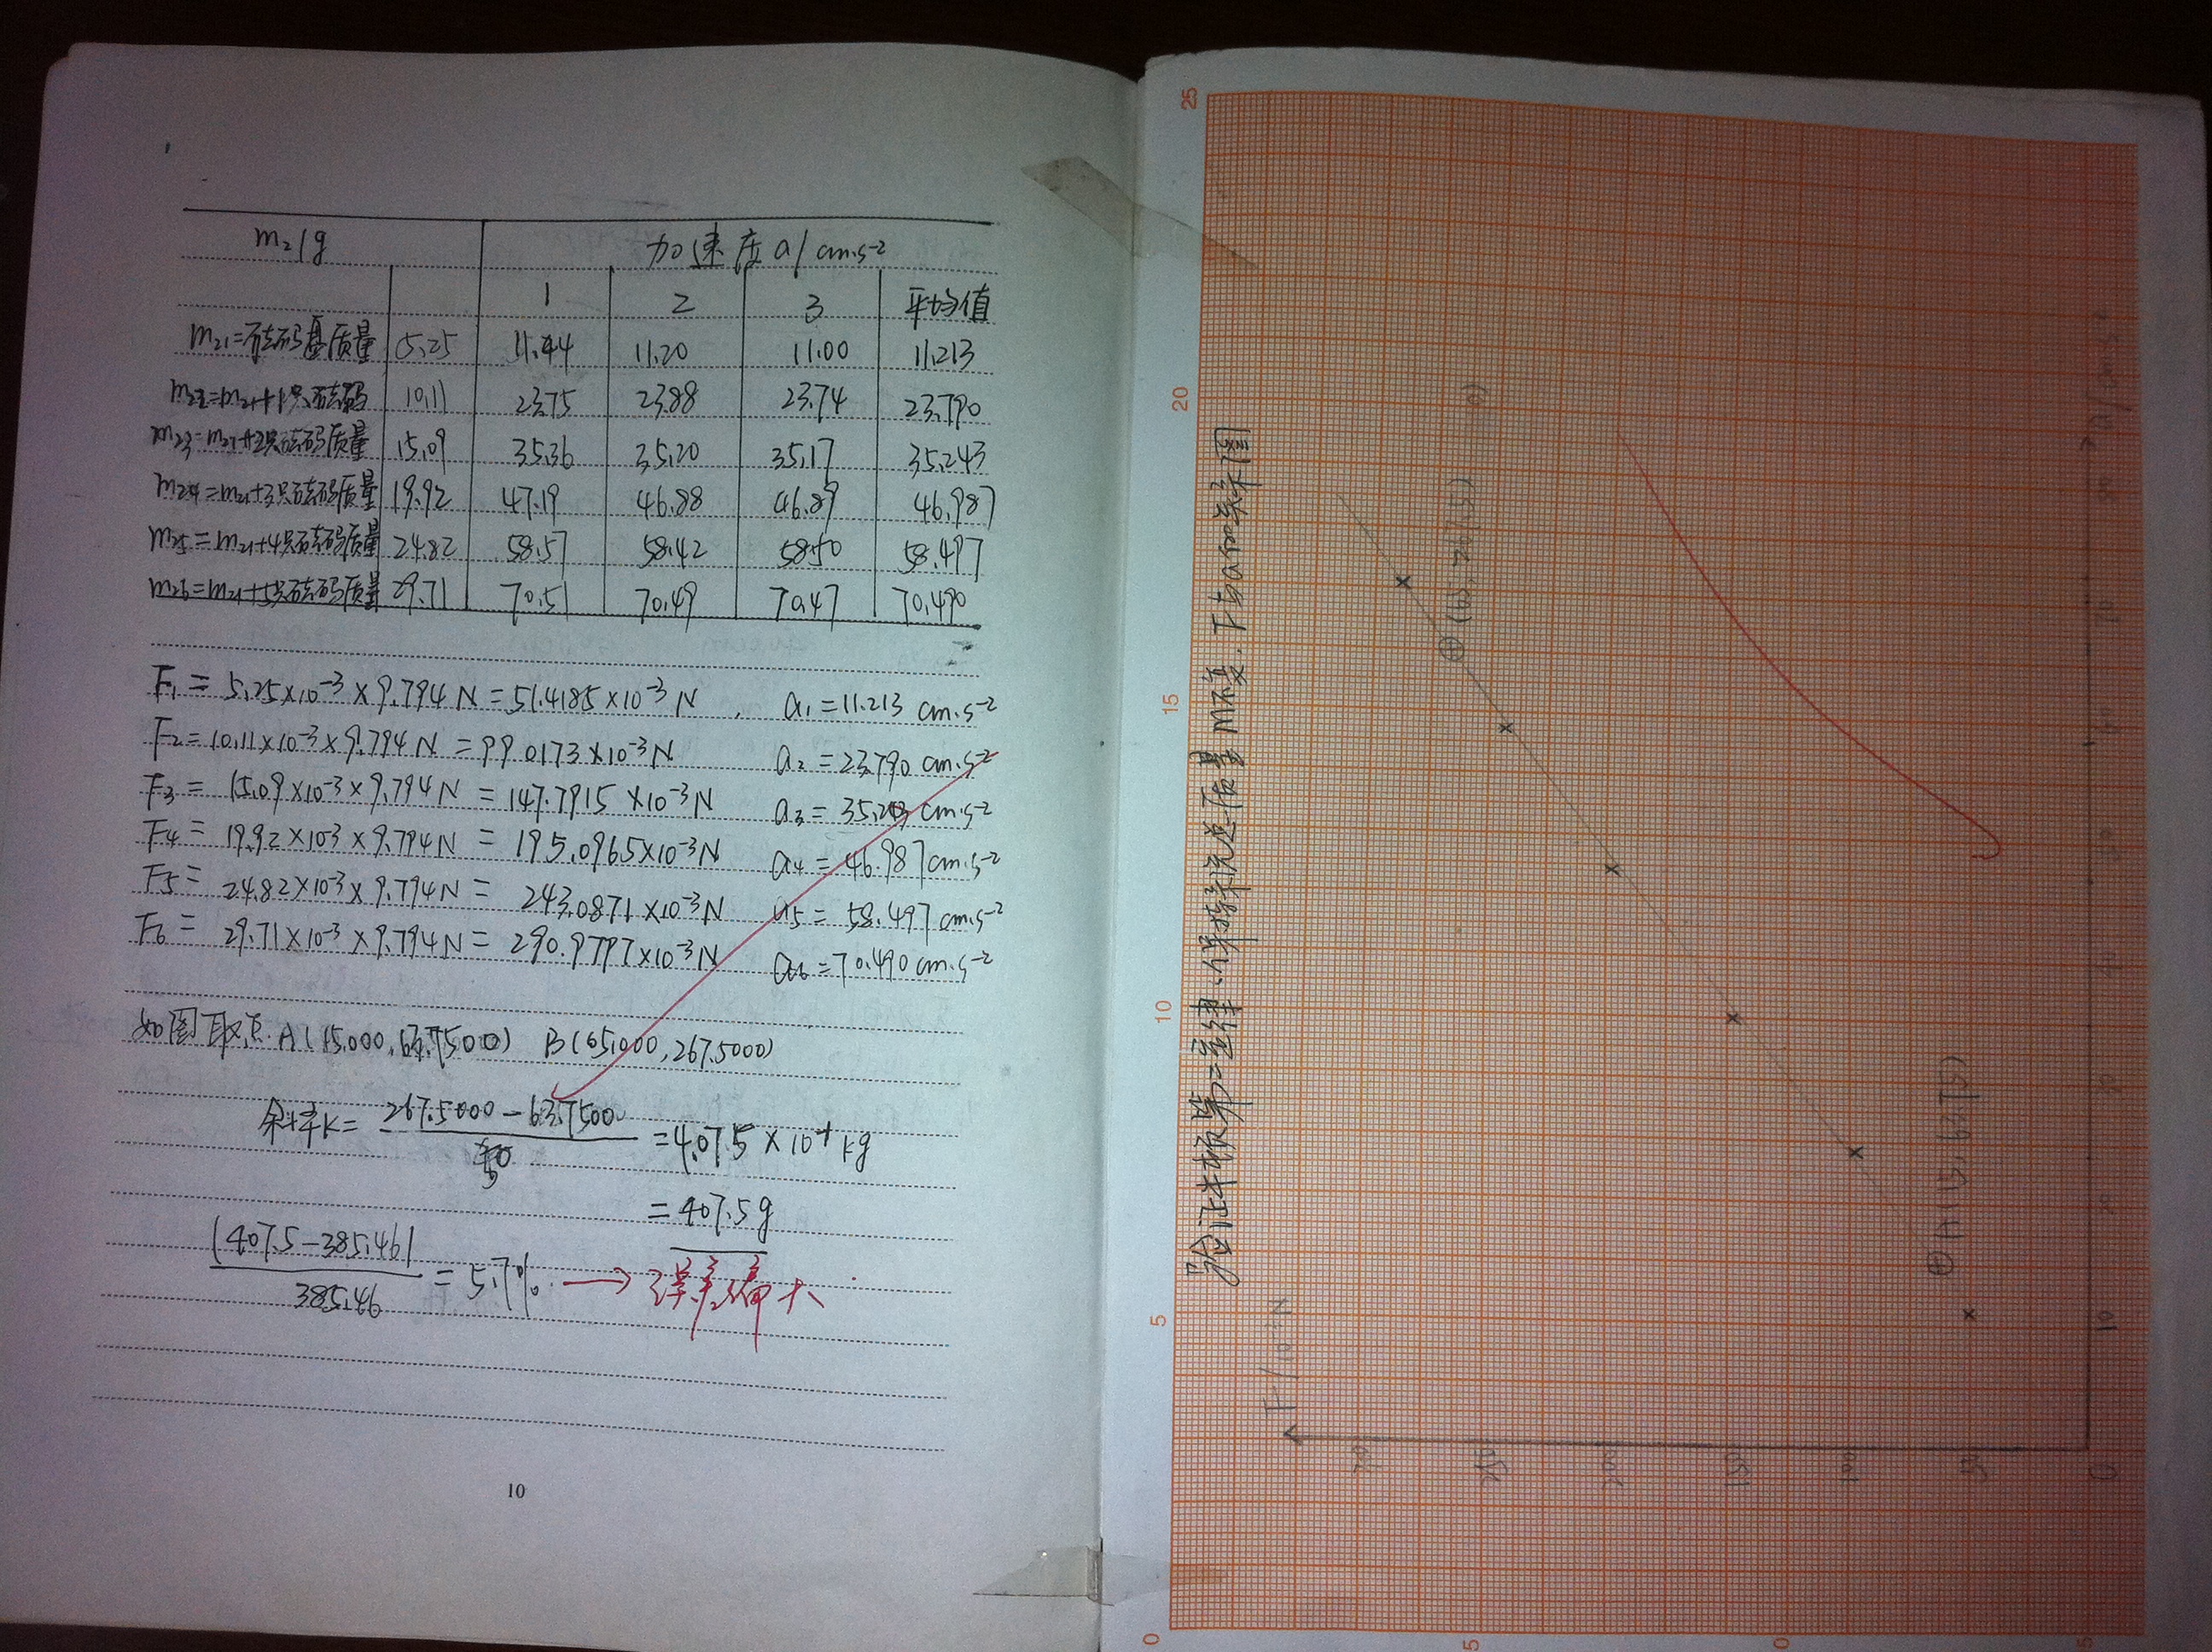 m₂/g 加速度a/cm·s⁻²
1 2 3 平均值
m₂₁=砝码基质量 5.25 11.44 11.20 11.00 11.213
m₂₂=m₂₁+1只砝码 10.11 23.75 23.88 23.74 23.790
m₂₃=m₂₁+2只砝码质量 15.09 35.36 35.20 35.17 35.243
m₂₄=m₂₁+3只砝码质量 19.92 47.19 46.88 46.89 46.987
m₂₅=m₂₁+4只砝码质量 24.82 58.57 58.42 58.50 58.497
m₂₆=m₂₁+5只砝码质量 29.71 70.51 70.49 70.47 70.490
F₁=5.25×10⁻³×9.794N=51.4185×10⁻³N, a₁=11.213cm·s⁻²
F₂=10.11×10⁻³×9.794N=99.0173×10⁻³N a₂=23.790cm·s⁻²
F₃=15.09×10⁻³×9.794N=147.7915×10⁻³N a₃=35.243cm·s⁻²
F₄=19.92×10⁻³×9.794N=195.0965×10⁻³N a₄=46.987cm·s⁻²
F₅=24.82×10⁻³×9.794N=243.0871×10⁻³N a₅=58.497cm·s⁻²
F₆=29.71×10⁻³×9.794N=290.9797×10⁻³N a₆=70.490cm·s⁻²
如图取点A(15.000,63.7500) B(65.000,267.5000)
斜率K=(267.5000-63.7500)/50=4.075×10⁻¹kg
=407.5g
|407.5-385.46|/385.46=5.7% → 误差偏大
10
验证牛顿第二定律.保持系统总质量M不变.F与a的关系图
F/10⁻³N
0
5
10
15
20
25